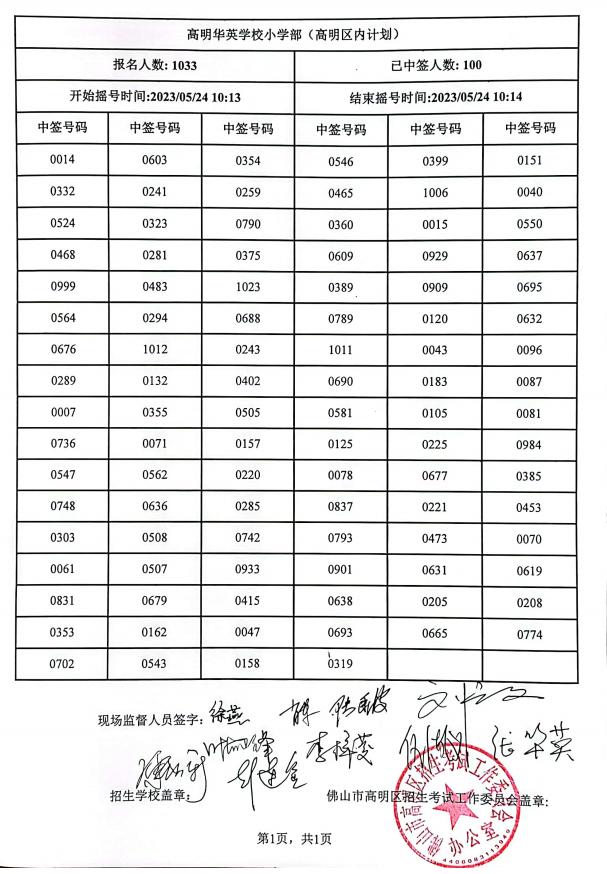 高明华英学校小学部（高明区内计划）
报名人数: 1033 已中签人数: 100
开始摇号时间:2023/05/24 10:13 结束摇号时间:2023/05/24 10:14
中签号码 中签号码 中签号码 中签号码 中签号码 中签号码
0014 0603 0354 0546 0399 0151
0332 0241 0259 0465 1006 0040
0524 0323 0790 0360 0015 0550
0468 0281 0375 0609 0929 0637
0999 0483 1023 0389 0909 0695
0564 0294 0688 0789 0120 0632
0676 1012 0243 1011 0043 0096
0289 0132 0402 0690 0183 0087
0007 0355 0505 0581 0105 0081
0736 0071 0157 0125 0225 0984
0547 0562 0220 0078 0677 0385
0748 0636 0285 0837 0221 0453
0303 0508 0742 0793 0473 0070
0061 0507 0933 0901 0631 0619
0831 0679 0415 0638 0205 0208
0353 0162 0047 0693 0665 0774
0702 0543 0158 0319
现场监督人员签字: 徐燕
李梓茂 张华英
招生学校盖章: 佛山市高明区招生考试工作委员会盖章:
佛山市高明区招生考试工作委员会
办公室
4400083113949
第1页，共1页